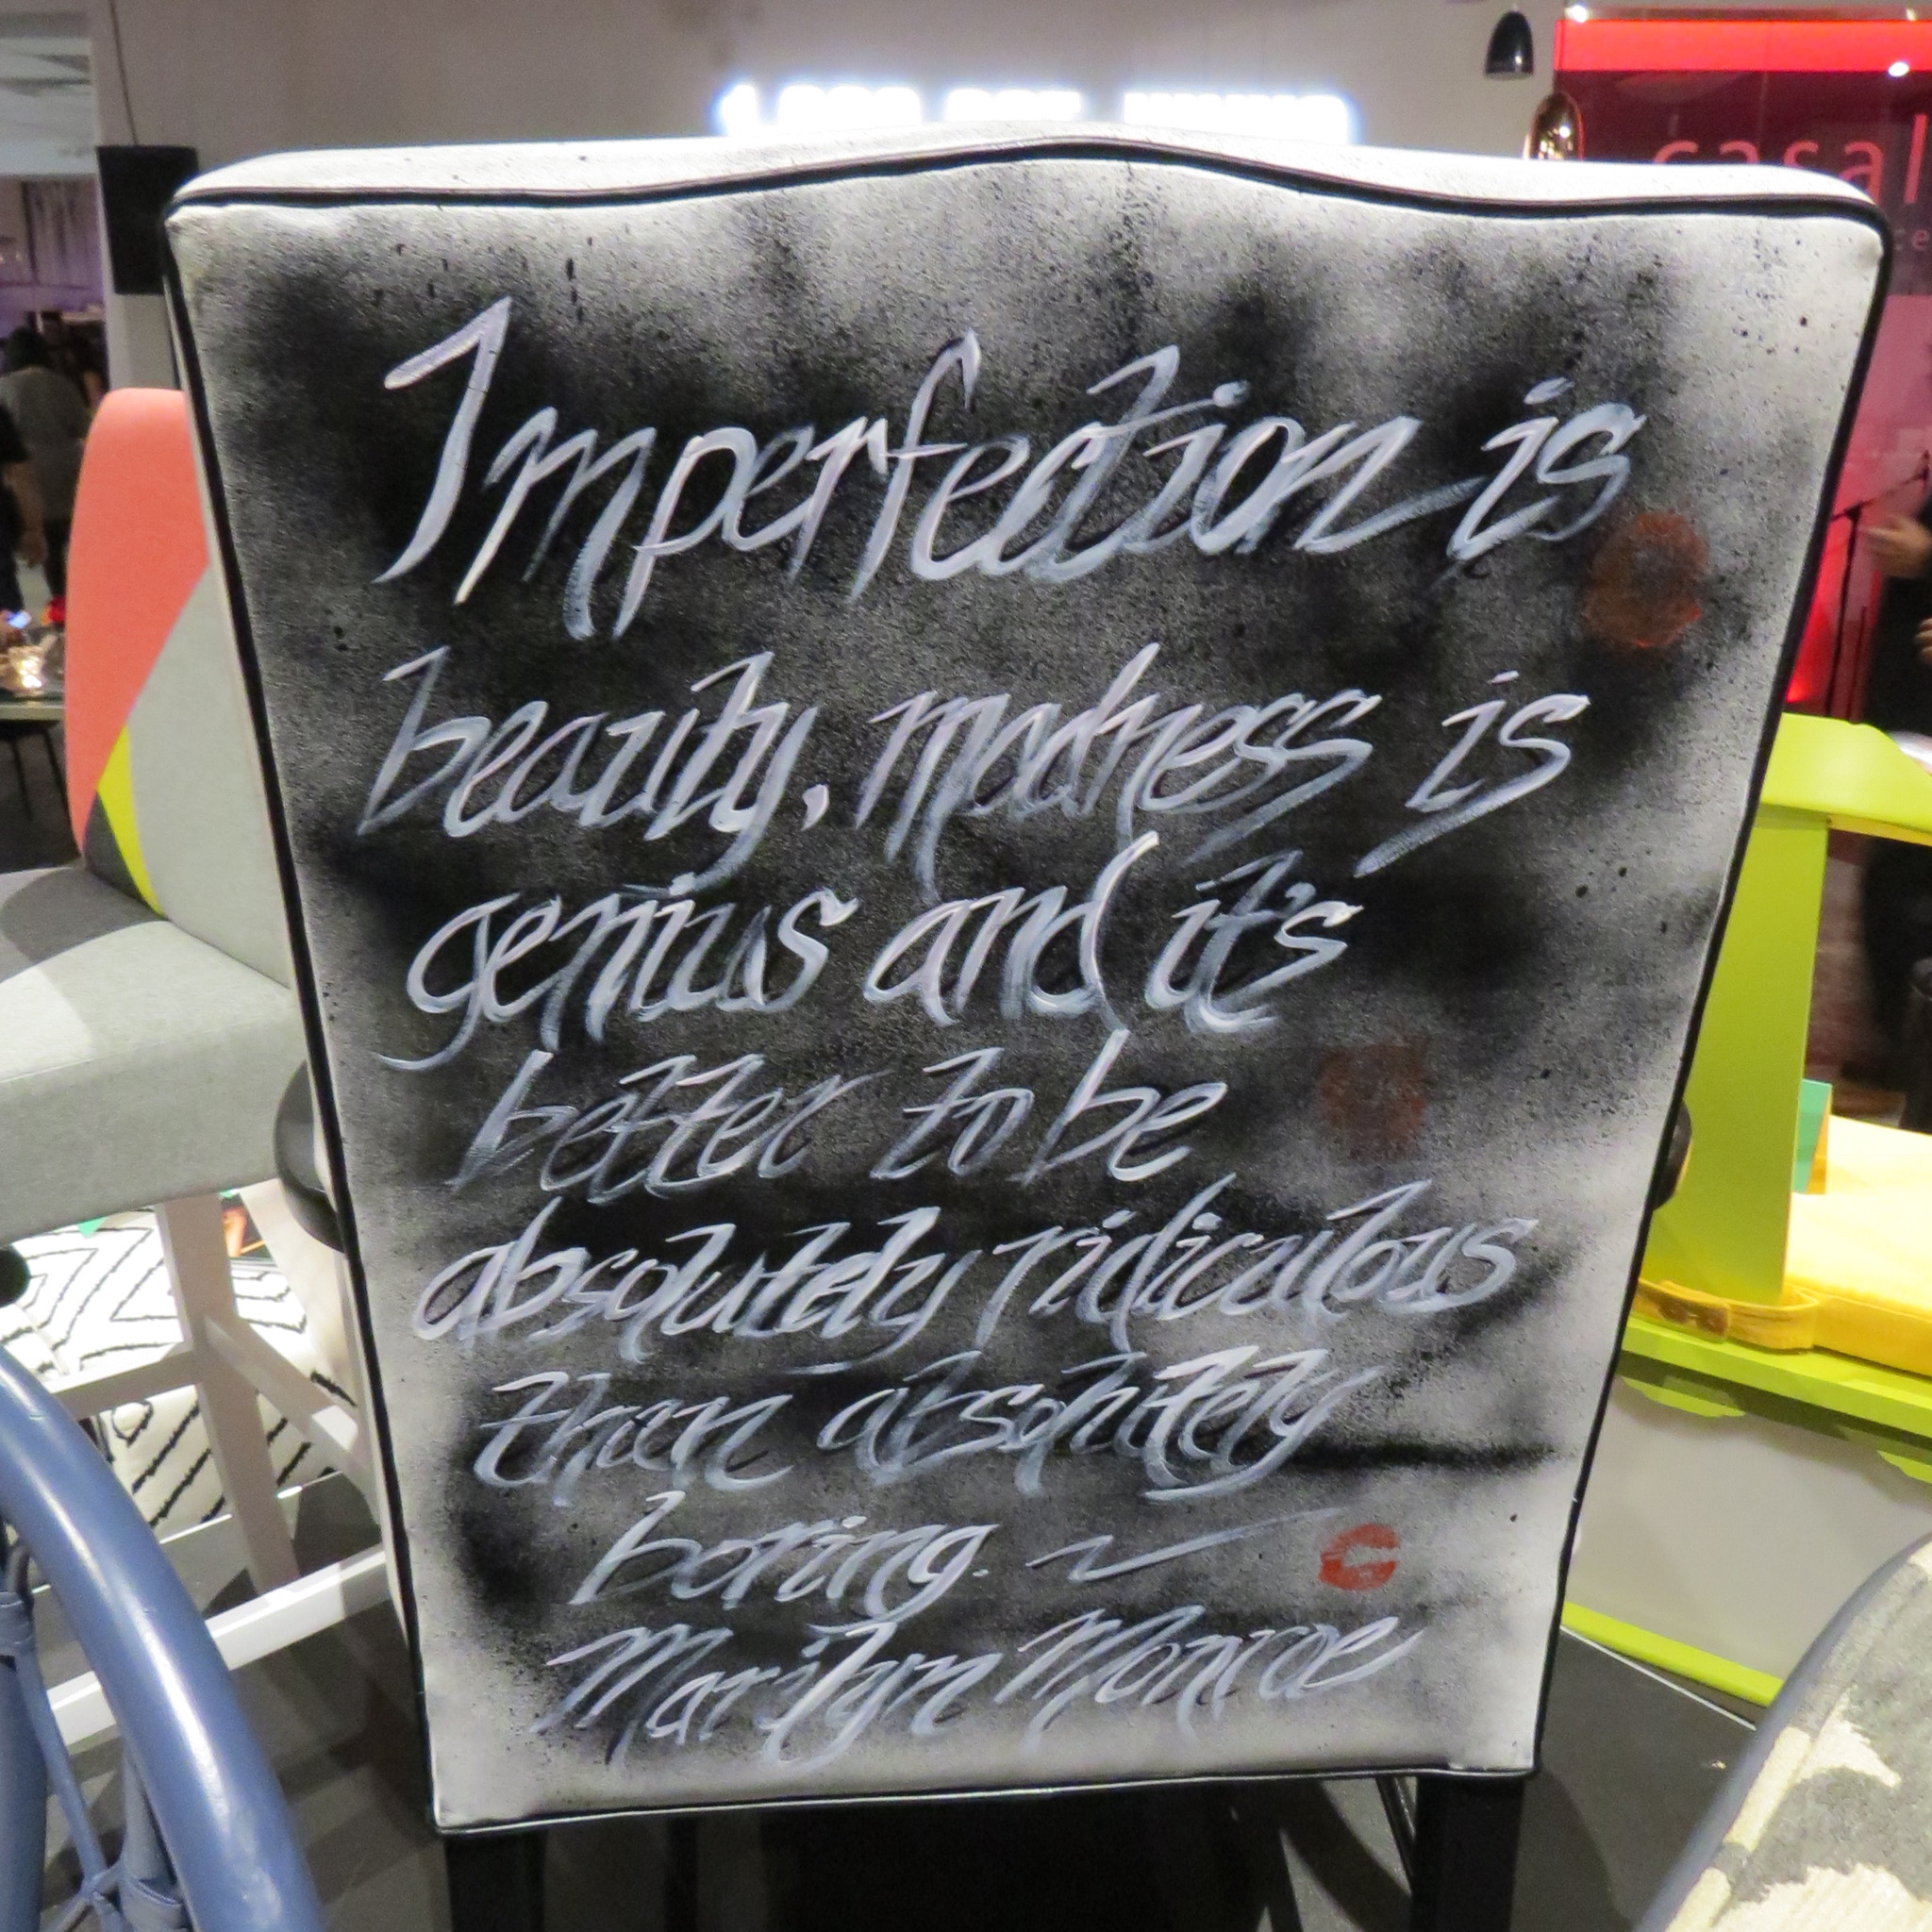 casal
Imperfection is
beauty, madness is
genius and it's
better to be
absolutely ridiculous
than absolutely
boring. ~
Marilyn Monroe